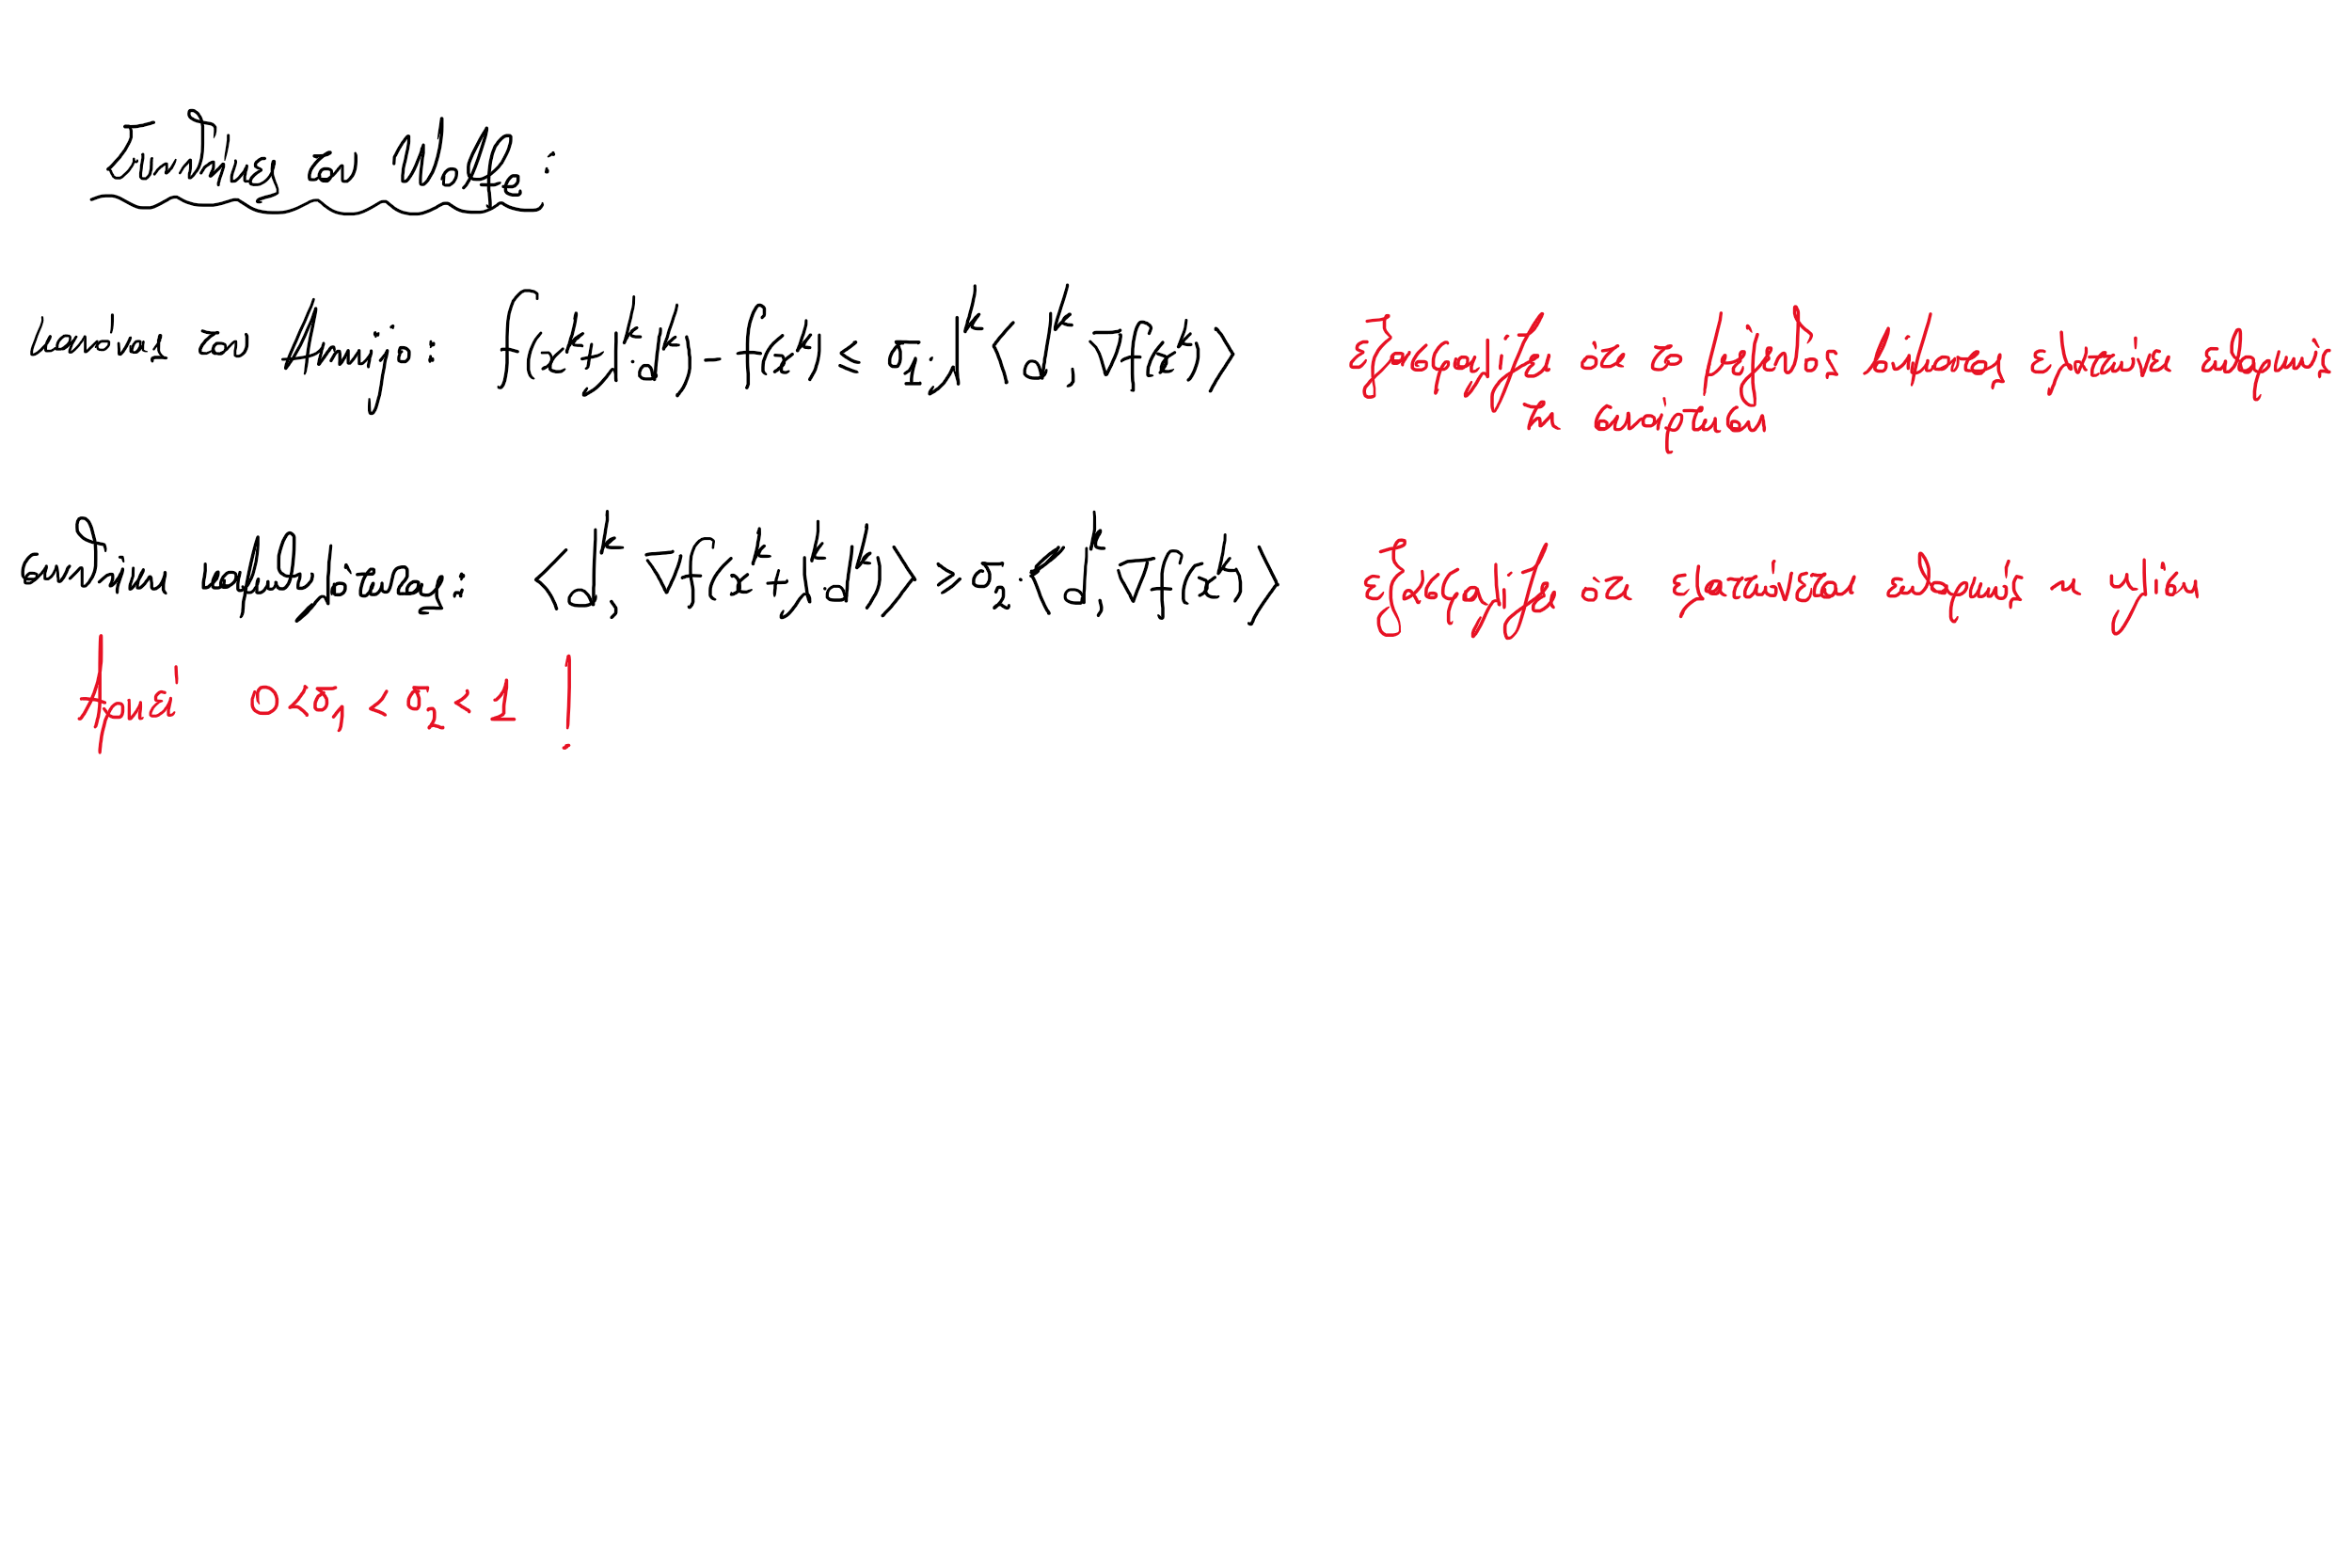 Συνθήκες του Wolfe:
κανόνας του Armijo: f(x^k+t^k·d^k)-f(x^k) ≤ σ_1·t^k<d^k,∇f(x^k)> εξασφαλίζει ότι το μέγεθος βήματος ελαττώνει επαρκώς
τη συνάρτηση
συνθήκη καμπυλότητας: <d^k,∇f(x^k+t^k·d^k)> ≥ σ_2·<d^k,∇f(x^k)> εξασφαλίζει ότι ελαττώνεται επαρκώς η κλίση
Αρκεί 0<σ_1<σ_2<1 !